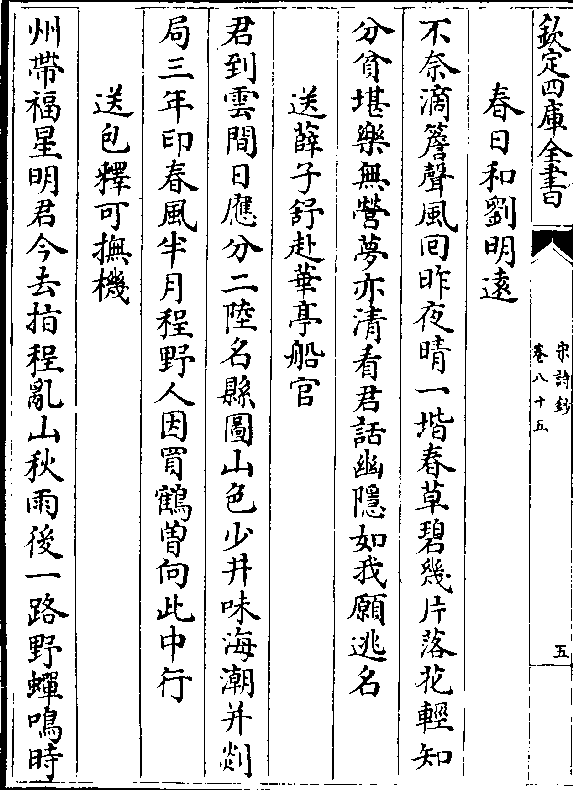 欽定四庫全書
宋詩鈔
卷八十五
五
春日和劉明遠
不奈滴簷聲風囘昨夜晴一堦春草碧幾片落花輕知
分貧堪樂無營夢亦清看君話幽隱如我願逃名
送薛子舒赴華亭船官
君到雲間日應分二陸名縣圖山色少井味海潮并剡
局三年印春風半月程野人因買鶴曽向此中行
送包釋可撫機
州帶福星明君今去指程亂山秋雨後一路野蟬鳴時